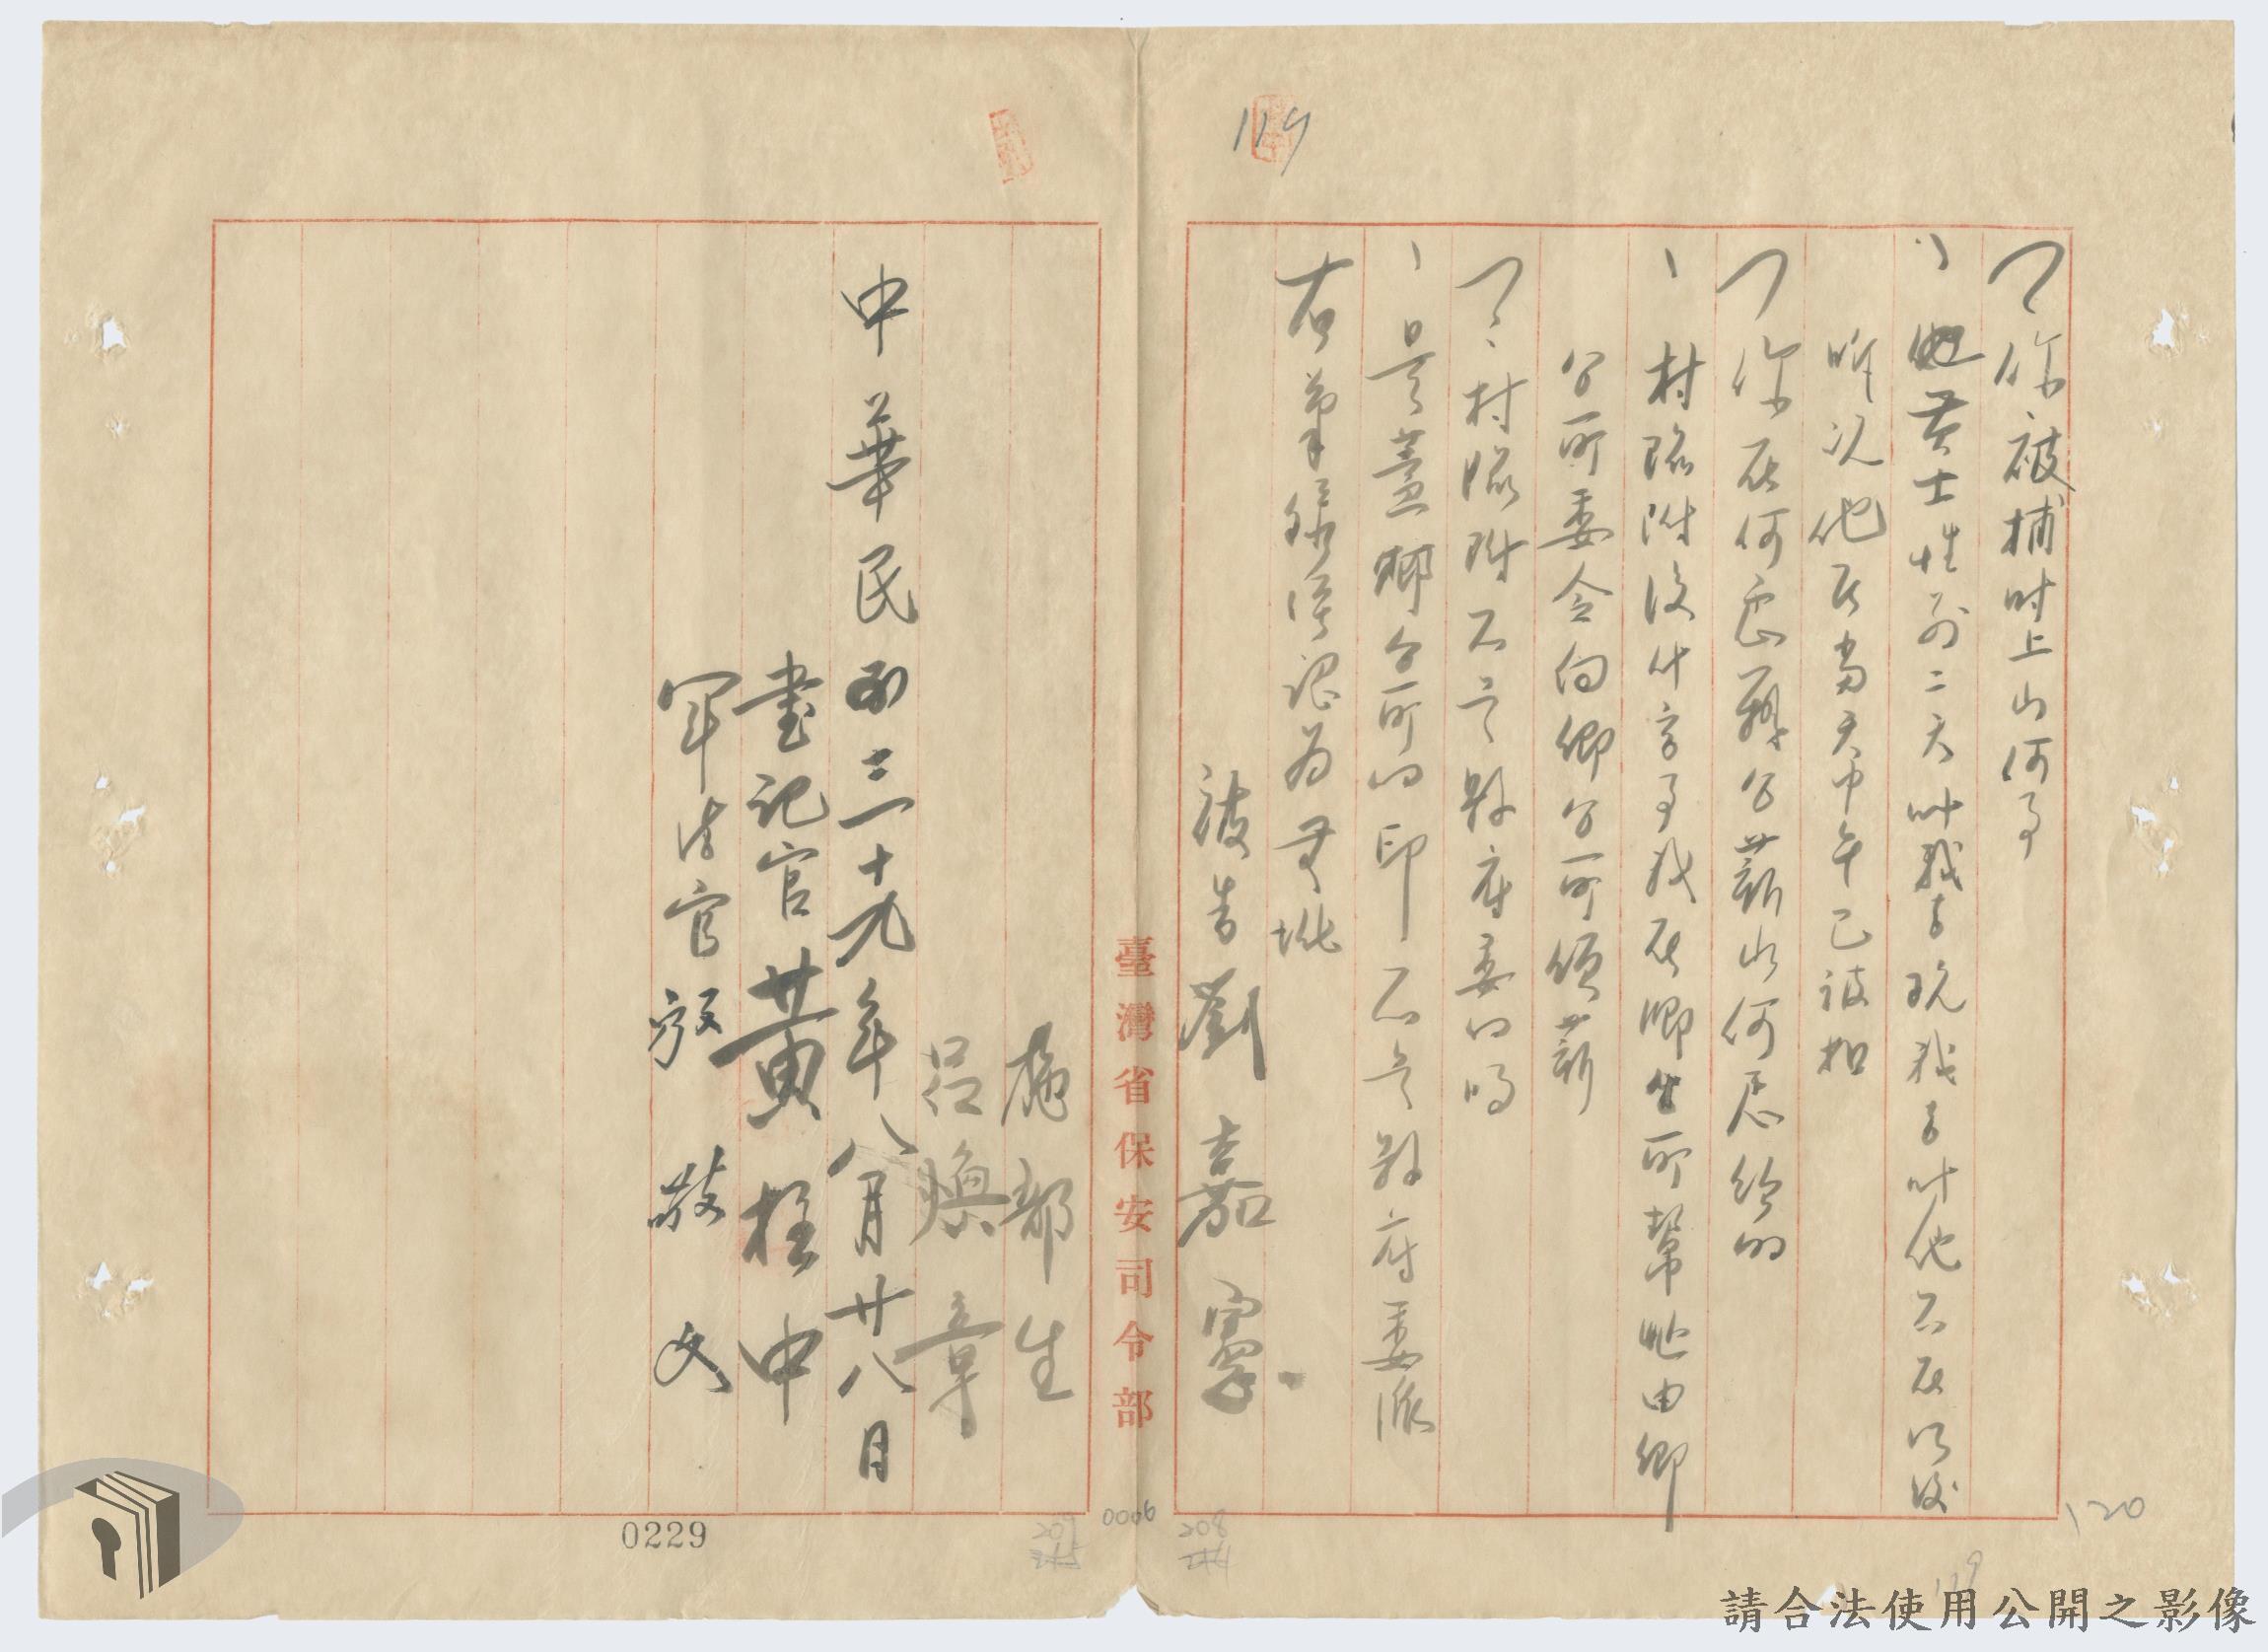 119
你被捕时上山何事
黄士性前二天叫我去玩我去叫他不在以後
听说他在当天中午已被扣
你在何处办公薪水何处给的
村臨時没什字事我在鄉公所幫忙由鄉
公所委令向鄉公所領薪
村臨時不是縣府委的嗎
是蓋鄉公所的印不是縣府委派
右筆錄承認為無訛
被告劉嘉寥
臺灣省保安司令部
施部生
呂煥章
中華民国三十九年八月廿八日
書記官黃柱中
軍法官殷敬文
120
119
208
0006
209
0229
請合法使用公開之影像